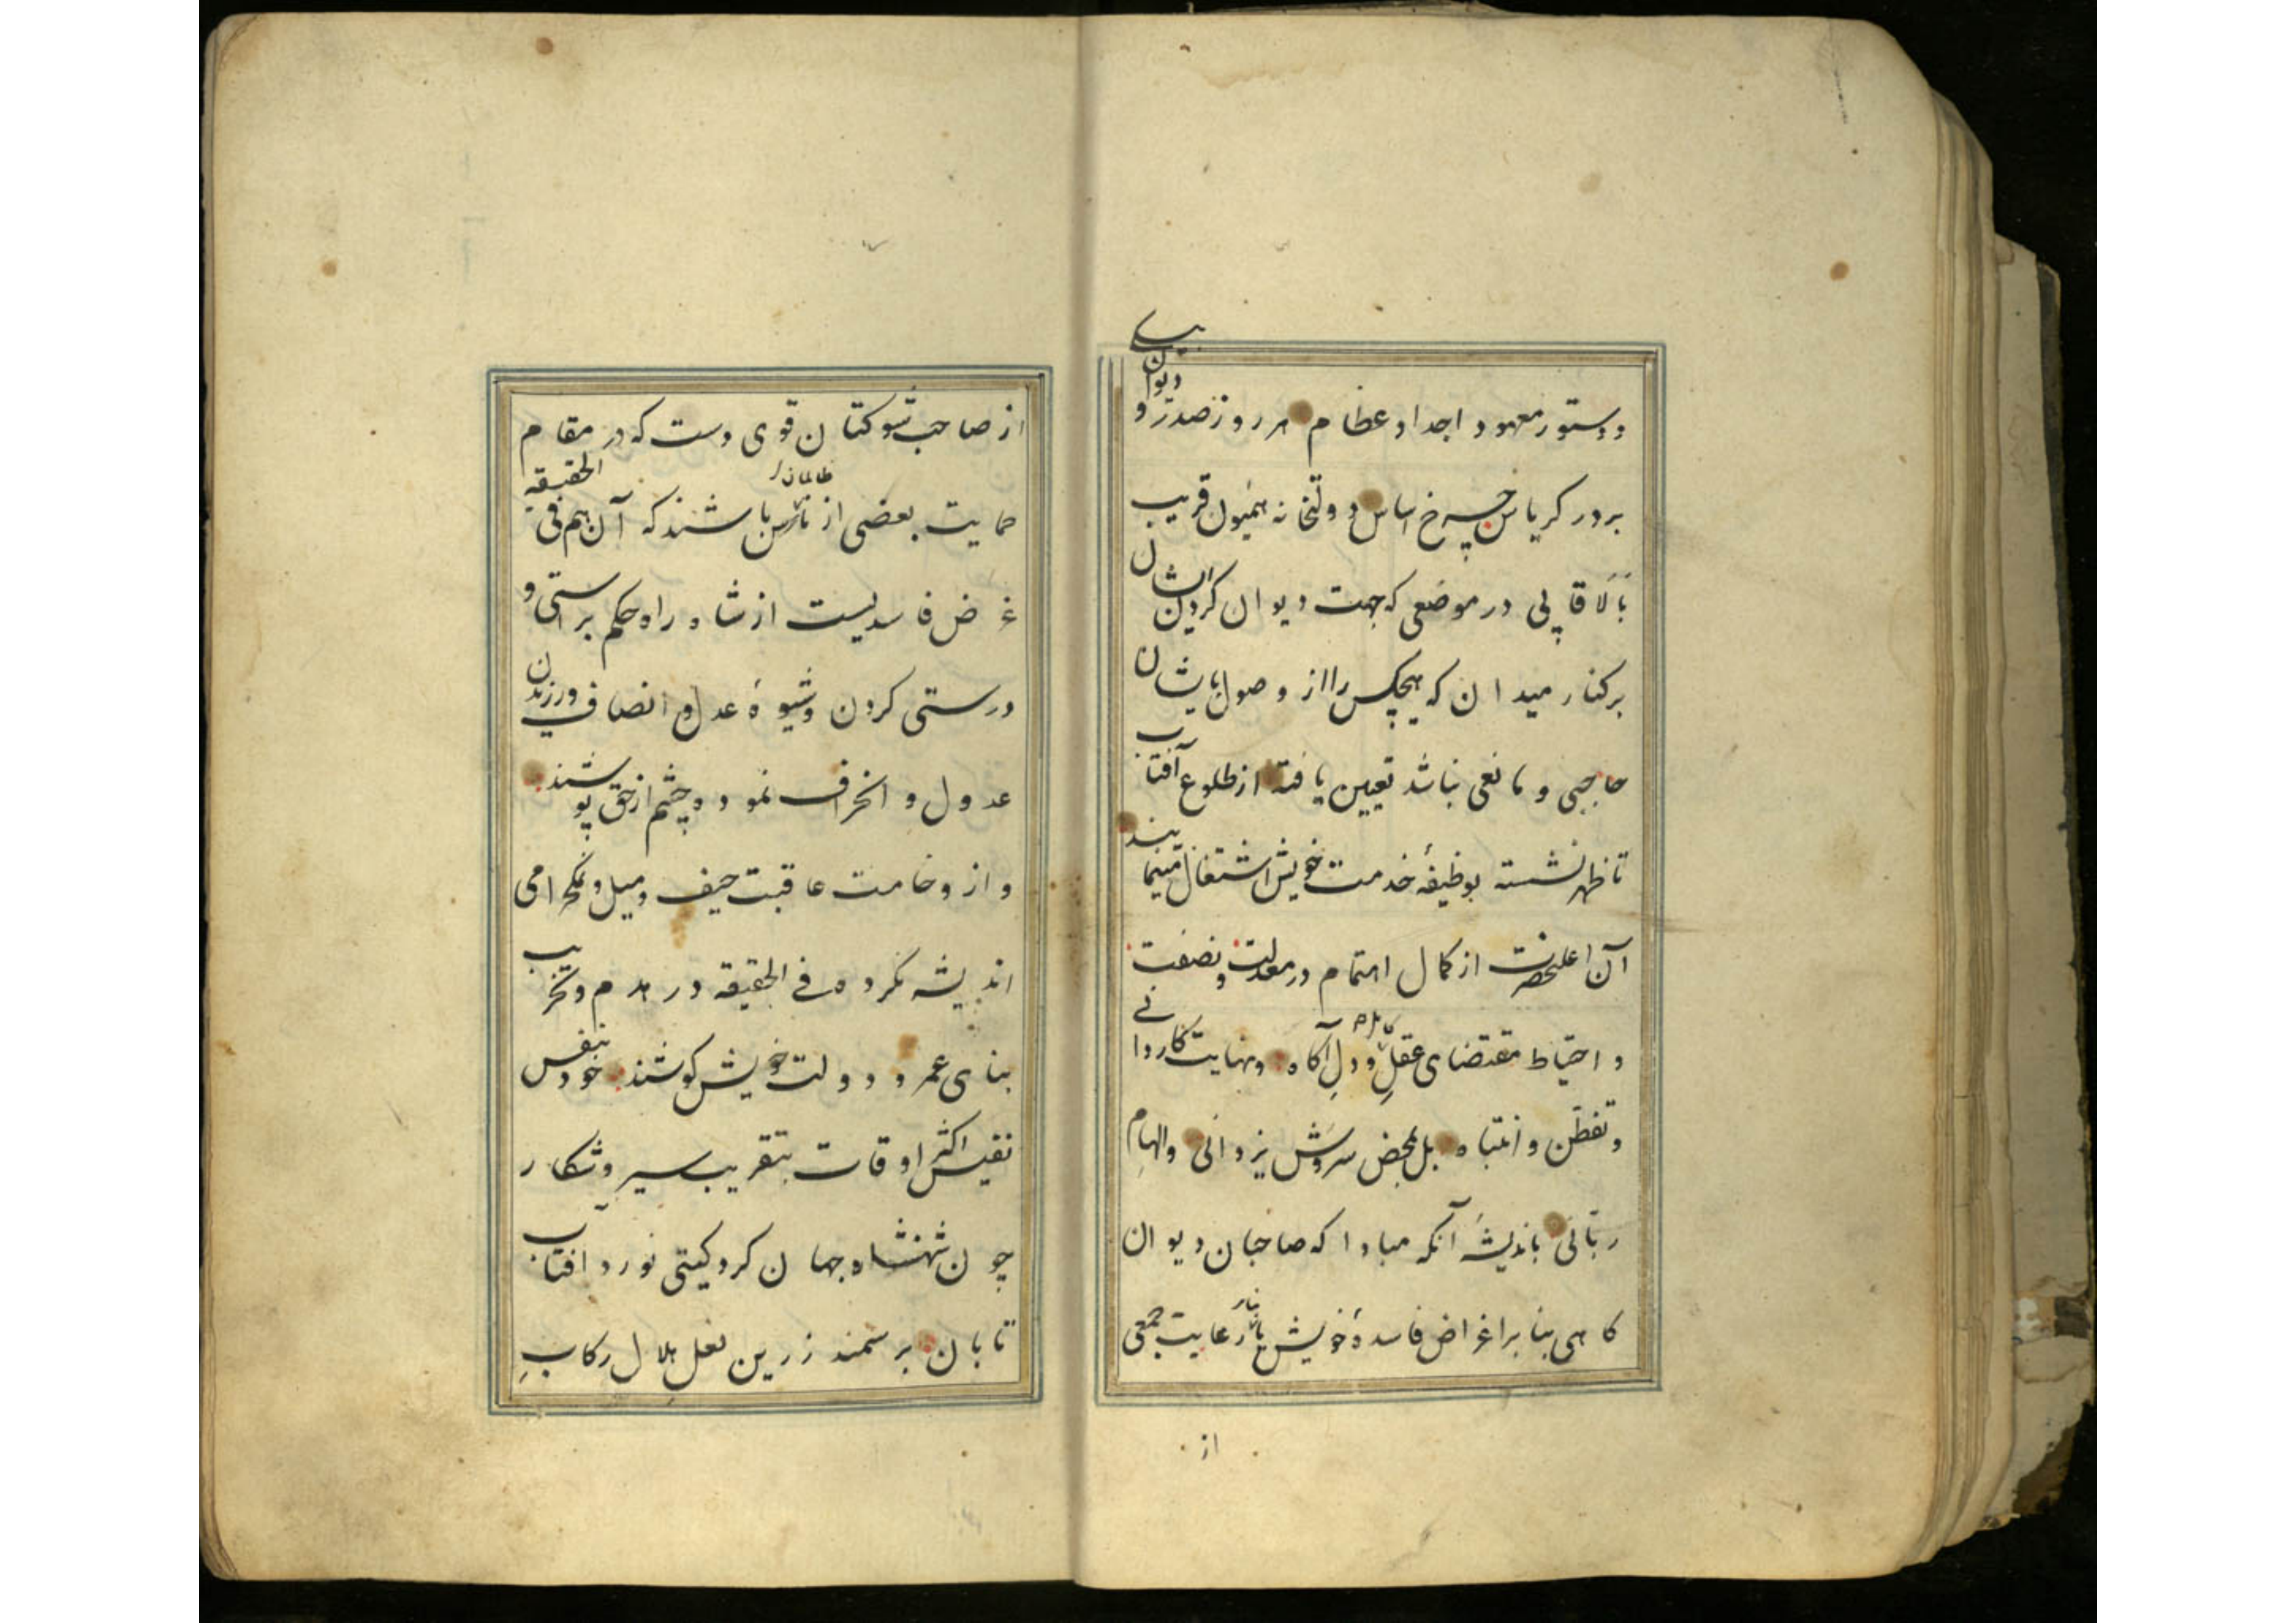 و دستور معهود اجداد عظام هر روز صدر و دیوان بیکی
بر در کریاس چرخ اساس دولتخانه همیون قریب
بالا قاپی در موضعی که جهت دیوان کردن ایشان
بر کنار میدان که هیچکس را از وصول بایشان
حاجبی و مانعی نباشد تعیین یافته از طلوع آفتاب
تا ظهر نشسته بوظیفهٔ خدمت خویش اشتغال مینمایند
آن اعلیحضرت از کمال اهتمام در معدلت و نصفت
و احتیاط مقتضای عقل کامل و دل آکاه و نهایت کاردانی
و تفطن و انتباه بل بمحض سروش یزدانی و الهام
ربانی باندیشهٔ آنکه مبادا که صاحبان دیوان
کاهی بنا بر اغراض فاسدهٔ خویش یا بنابر رعایت جمعی
از
از صاحب شوکتان قوی دست که در مقام
حمایت بعضی از ظالمان باشند که آن هم فی الحقیقه
غرض فاسدیست از شاه راه حکم براستی و
درستی کردن و شیوهٔ عدل و انصاف ورزیدن
عدول و انحراف نمود و چشم از حق پوشند
و از وخامت عاقبت حیف و میل و نمکحرامی
اندیشه نکرده فی الحقیقه در هدم و تخریب
بنای عمر و دولت خویش کوشند خود بنفس
نفیس اکثر اوقات بتقریب سیر و شکار
چون شهنشاه جهان کرد کیتی نورد آفتاب
تابان بر سمند زرین نعل هلال رکاب